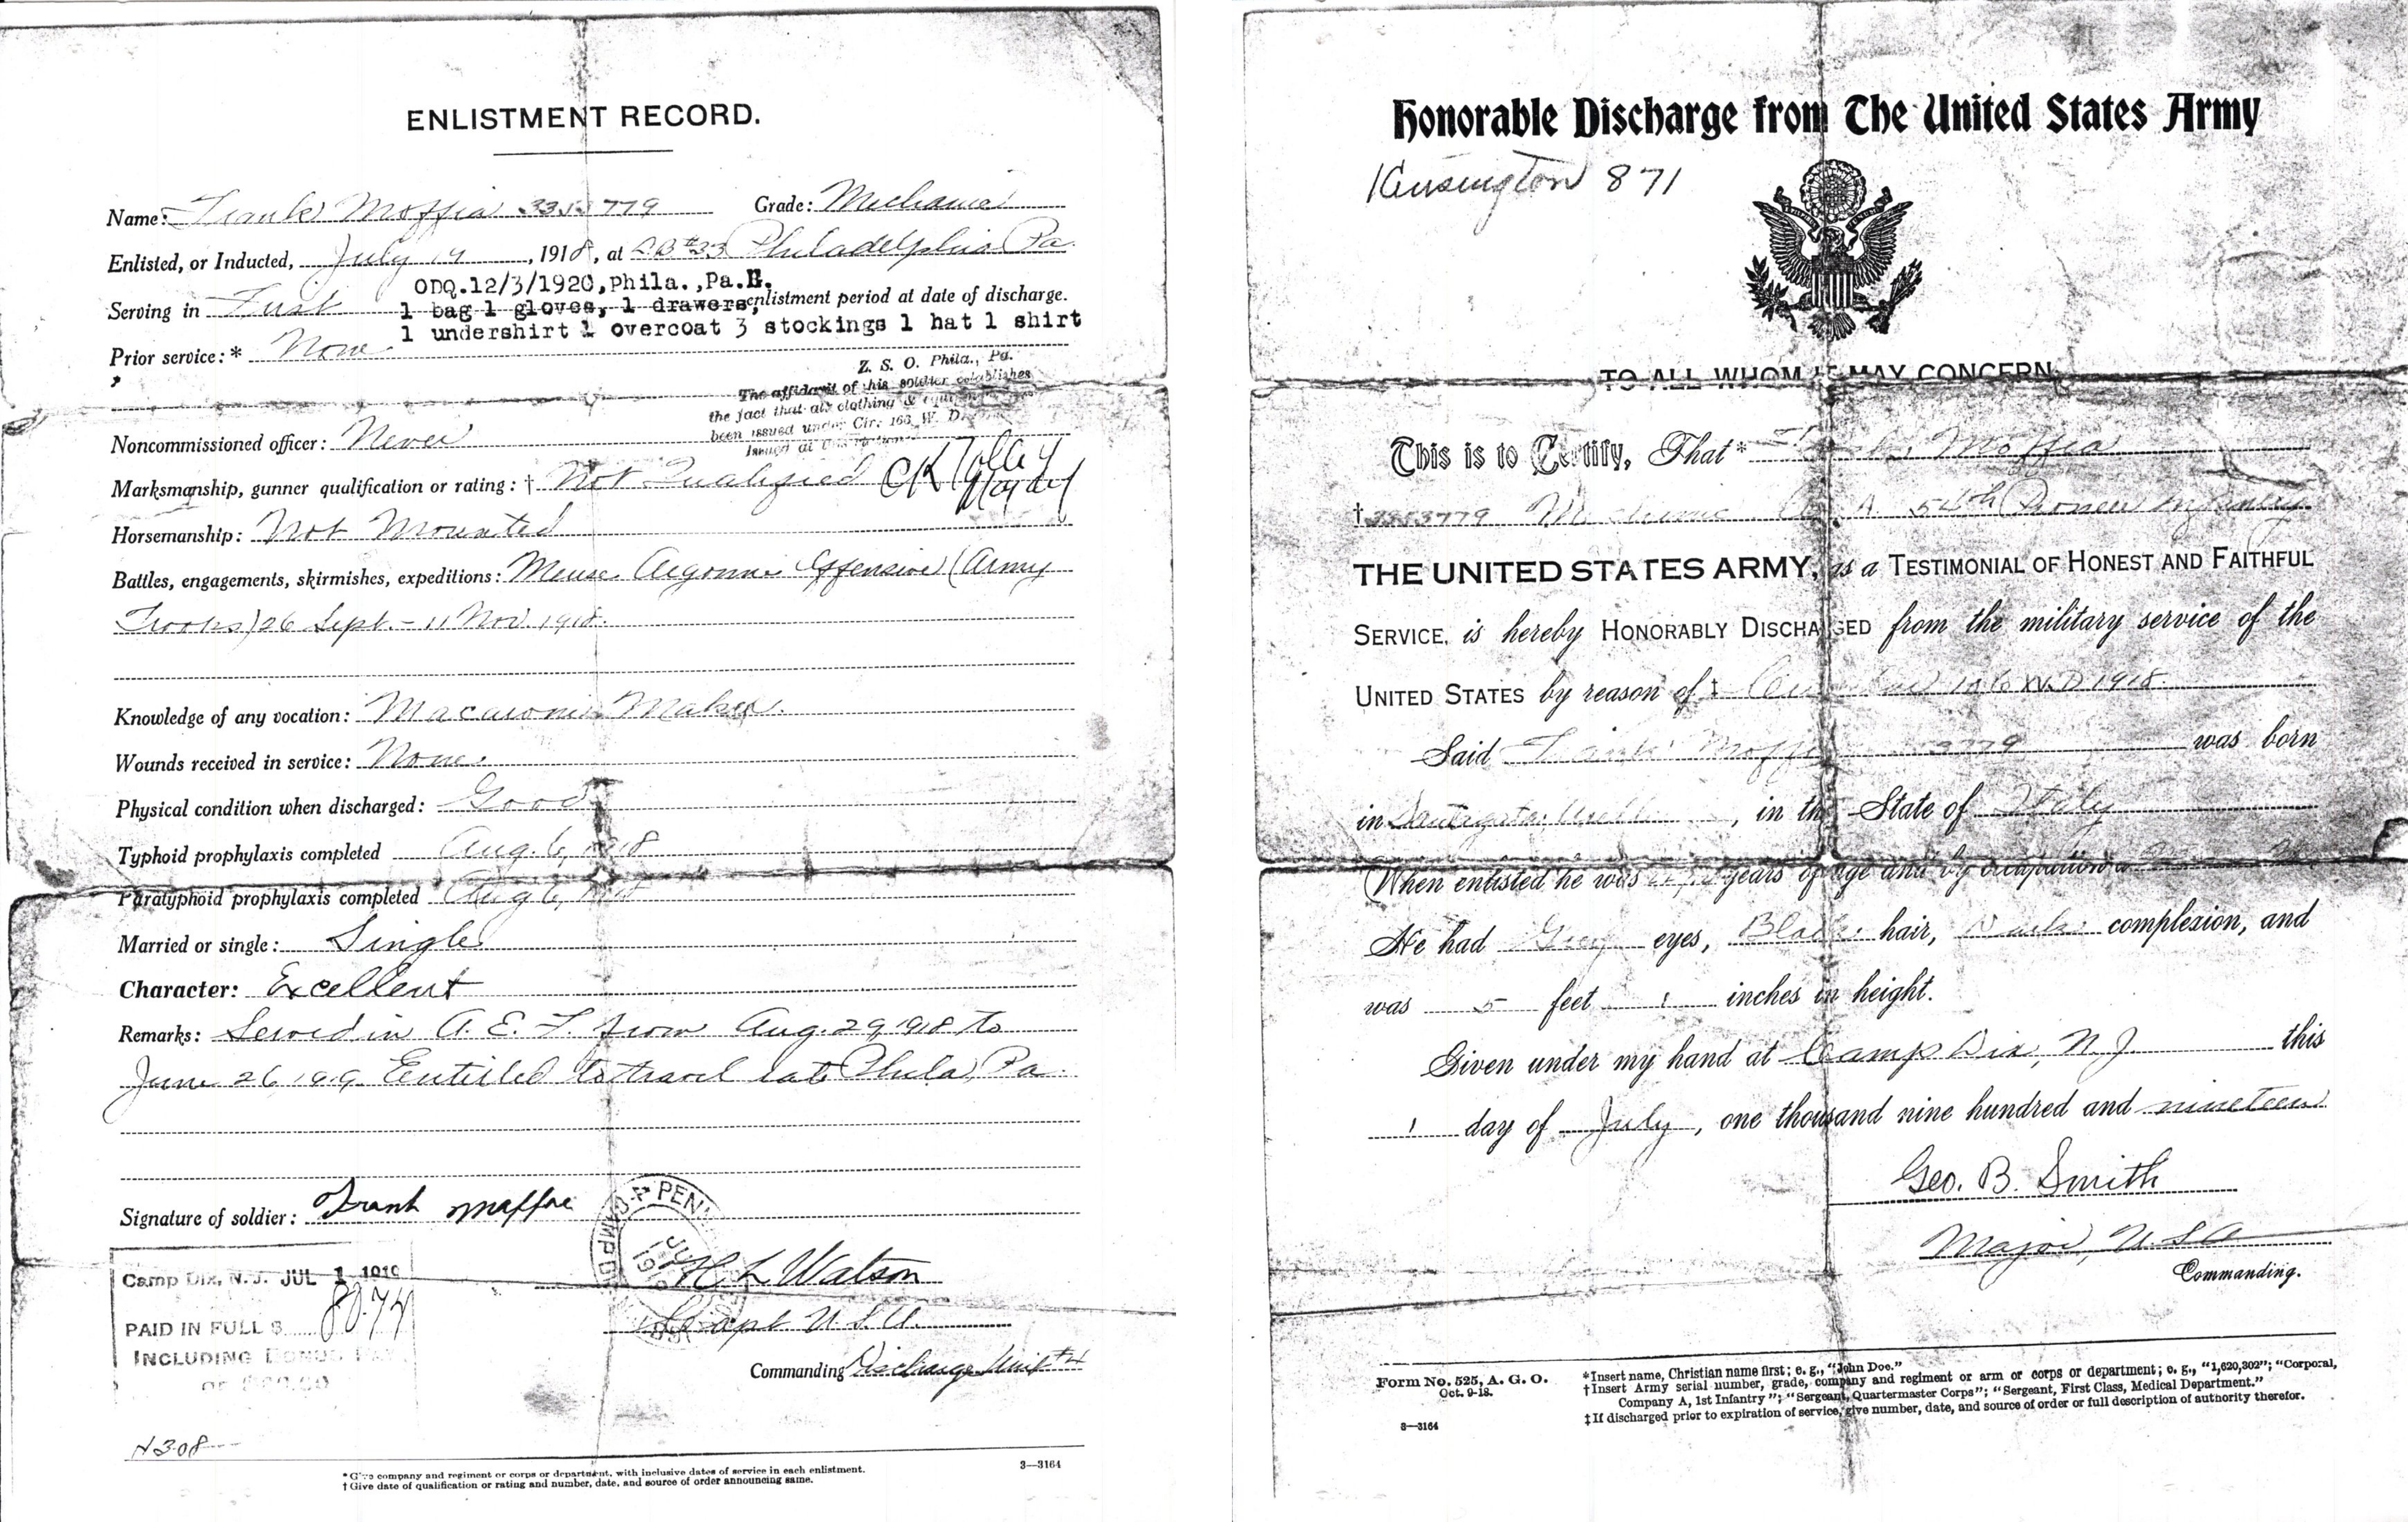 ENLISTMENT RECORD.
Name: Frank Moffia 3353779 Grade: Mechanic
Enlisted, or Inducted, July 14, 1918, at LB#33 Philadelphia Pa.
ODQ.12/3/1920,Phila.,Pa.
Serving in First enlistment period at date of discharge.
1 bag 1 gloves, 1 drawers,
1 undershirt 1 overcoat 3 stockings 1 hat 1 shirt
Prior service:* None
Z. S. O. Phila., Pa.
The affidavit of this soldier establishes
the fact that all clothing &
been issued under Cir. 166 W. D.
Issued at
Noncommissioned officer: Never
Marksmanship, gunner qualification or rating:† Not Qualified
Horsemanship: Not Mounted
Battles, engagements, skirmishes, expeditions: Meuse Argonne Offensive (Army
Troops) 26 Sept. - 11 Nov. 1918.
Knowledge of any vocation: Macaroni Maker.
Wounds received in service: None.
Physical condition when discharged: Good
Typhoid prophylaxis completed Aug. 6, 1918
Paratyphoid prophylaxis completed Aug 6, 1918
Married or single: Single
Character: Excellent
Remarks: Served in A. E. F. from Aug. 29, 1918 to
June 26, 1919. Entitled to travel to Phila, Pa.
Signature of soldier: Frank Maffia
Camp Dix, N. J. JUL 1 1919
PAID IN FULL $ 80.74
INCLUDING BONUS PAY
OF $60.00
H L Watson
Capt U S A.
Commanding Discharge Unit #4
N308
*Give company and regiment or corps or department, with inclusive dates of service in each enlistment.
†Give date of qualification or rating and number, date, and source of order announcing same.
3—3164
Honorable Discharge from The United States Army
Kensington 871
TO ALL WHOM IT MAY CONCERN
This is to Certify, That* Moffia
†3353779 Mechanic Co. A. 54th Pioneer Infantry
THE UNITED STATES ARMY, as a TESTIMONIAL OF HONEST AND FAITHFUL
SERVICE, is hereby HONORABLY DISCHARGED from the military service of the
UNITED STATES by reason of‡ W.D 1918.
Said Frank Moffia 3779 was born
in , in the State of Italy
When enlisted he was years of age and by occupation a
He had Grey eyes, Black hair, Dark complexion, and
was 5 feet 1 inches in height.
Given under my hand at Camp Dix, N. J. this
1 day of July, one thousand nine hundred and nineteen
Geo. B. Smith
Major, U. S. A
Commanding.
Form No. 525, A. G. O.
Oct. 9-18.
3—3164
*Insert name, Christian name first; e. g., "John Doe."
†Insert Army serial number, grade, company and regiment or arm or corps or department; e. g., "1,620,302"; "Corporal,
Company A, 1st Infantry"; "Sergeant, Quartermaster Corps"; "Sergeant, First Class, Medical Department."
‡If discharged prior to expiration of service, give number, date, and source of order or full description of authority therefor.